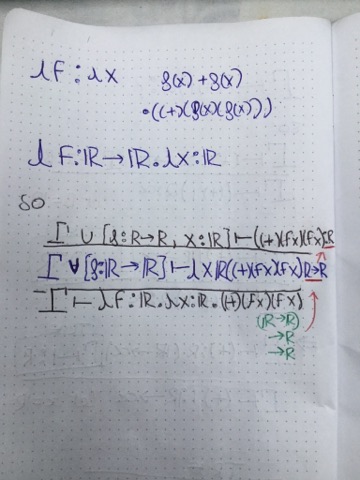 λF : λx   f(x) + f(x)
•((+)(f(x)(f(x)))
λF:ℝ→ℝ.λx:ℝ
SO
Γ ∪ [f:ℝ→ℝ, x:ℝ] ⊢ ((+)(fx)(fx)):ℝ
Γ ∀ [f:ℝ→ℝ] ⊢ λxℝ((+)(fx)(fx)) ℝ→ℝ
Γ ⊢ λF:ℝ.λx:ℝ.(+)(fx)(fx)
(ℝ→ℝ)
→ℝ
→ℝ